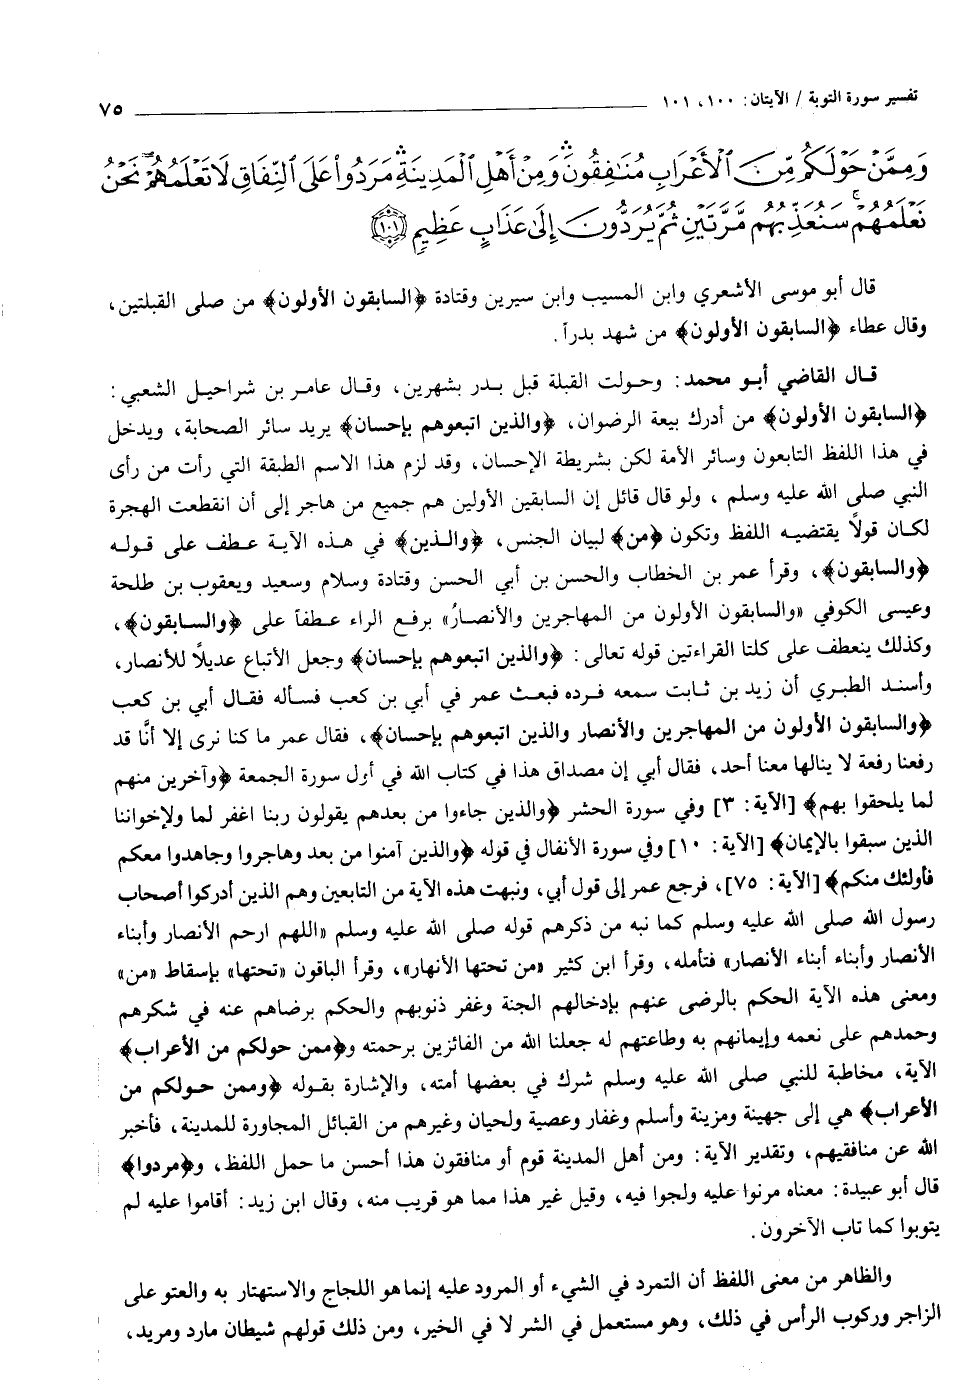 تفسير سورة التوبة / الآيتان: ١٠٠، ١٠١ ٧٥
وَمِمَّنْ حَوْلَكُم مِّنَ ٱلْأَعْرَابِ مُنَافِقُونَ وَمِنْ أَهْلِ ٱلْمَدِينَةِ مَرَدُوا۟ عَلَى ٱلنِّفَاقِ لَا تَعْلَمُهُمْ نَحْنُ
نَعْلَمُهُمْ سَنُعَذِّبُهُم مَّرَّتَيْنِ ثُمَّ يُرَدُّونَ إِلَىٰ عَذَابٍ عَظِيمٍ ١٠١
قال أبو موسى الأشعري وابن المسيب وابن سيرين وقتادة ﴿السابقون الأولون﴾ من صلى القبلتين،
وقال عطاء ﴿السابقون الأولون﴾ من شهد بدراً.
قال القاضي أبو محمد: وحولت القبلة قبل بدر بشهرين، وقال عامر بن شراحيل الشعبي:
﴿السابقون الأولون﴾ من أدرك بيعة الرضوان، ﴿والذين اتبعوهم بإحسان﴾ يريد سائر الصحابة، ويدخل
في هذا اللفظ التابعون وسائر الأمة لكن بشريطة الإحسان، وقد لزم هذا الاسم الطبقة التي رأت من رأى
النبي صلى الله عليه وسلم ، ولو قال قائل إن السابقين الأولين هم جميع من هاجر إلى أن انقطعت الهجرة
لكان قولاً يقتضيه اللفظ وتكون ﴿من﴾ لبيان الجنس، ﴿والذين﴾ في هذه الآية عطف على قوله
﴿والسابقون﴾، وقرأ عمر بن الخطاب والحسن بن أبي الحسن وقتادة وسلام وسعيد ويعقوب بن طلحة
وعيسى الكوفي «والسابقون الأولون من المهاجرين والأنصارُ» برفع الراء عطفاً على ﴿والسابقون﴾،
وكذلك ينعطف على كلتا القراءتين قوله تعالى: ﴿والذين اتبعوهم بإحسان﴾ وجعل الأتباع عديلاً للأنصار،
وأسند الطبري أن زيد بن ثابت سمعه فرده فبعث عمر في أبي بن كعب فسأله فقال أبي بن كعب
﴿والسابقون الأولون من المهاجرين والأنصار والذين اتبعوهم بإحسان﴾، فقال عمر ما كنا نرى إلا أنَّا قد
رفعنا رفعة لا ينالها معنا أحد، فقال أبي إن مصداق هذا في كتاب الله في أول سورة الجمعة ﴿وآخرين منهم
لما يلحقوا بهم﴾ [الآية: ٣] وفي سورة الحشر ﴿والذين جاءوا من بعدهم يقولون ربنا اغفر لما ولإخواننا
الذين سبقوا بالإيمان﴾ [الآية: ١٠] وفي سورة الأنفال في قوله ﴿والذين آمنوا من بعد وهاجروا وجاهدوا معكم
فأولئك منكم﴾ [الآية: ٧٥]، فرجع عمر إلى قول أبي، ونبهت هذه الآية من التابعين وهم الذين أدركوا أصحاب
رسول الله صلى الله عليه وسلم كما نبه من ذكرهم قوله صلى الله عليه وسلم «اللهم ارحم الأنصار وأبناء
الأنصار وأبناء أبناء الأنصار» فتأمله، وقرأ ابن كثير «من تحتها الأنهار»، وقرأ الباقون «تحتها» بإسقاط «من»
ومعنى هذه الآية الحكم بالرضى عنهم بإدخالهم الجنة وغفر ذنوبهم والحكم برضاهم عنه في شكرهم
وحمدهم على نعمه وإيمانهم به وطاعتهم له جعلنا الله من الفائزين برحمته و﴿ممن حولكم من الأعراب﴾
الآية، مخاطبة للنبي صلى الله عليه وسلم شرك في بعضها أمته، والإشارة بقوله ﴿وممن حولكم من
الأعراب﴾ هي إلى جهينة ومزينة وأسلم وغفار وعصية ولحيان وغيرهم من القبائل المجاورة للمدينة، فأخبر
الله عن منافقيهم، وتقدير الآية: ومن أهل المدينة قوم أو منافقون هذا أحسن ما حمل اللفظ، و﴿مردوا﴾
قال أبو عبيدة: معناه مرنوا عليه ولجوا فيه، وقيل غير هذا مما هو قريب منه، وقال ابن زيد: أقاموا عليه لم
يتوبوا كما تاب الآخرون.
والظاهر من معنى اللفظ أن التمرد في الشيء أو المرود عليه إنما هو اللجاج والاستهتار به والعتو على
الزاجر وركوب الرأس في ذلك، وهو مستعمل في الشر لا في الخير، ومن ذلك قولهم شيطان مارد ومريد،